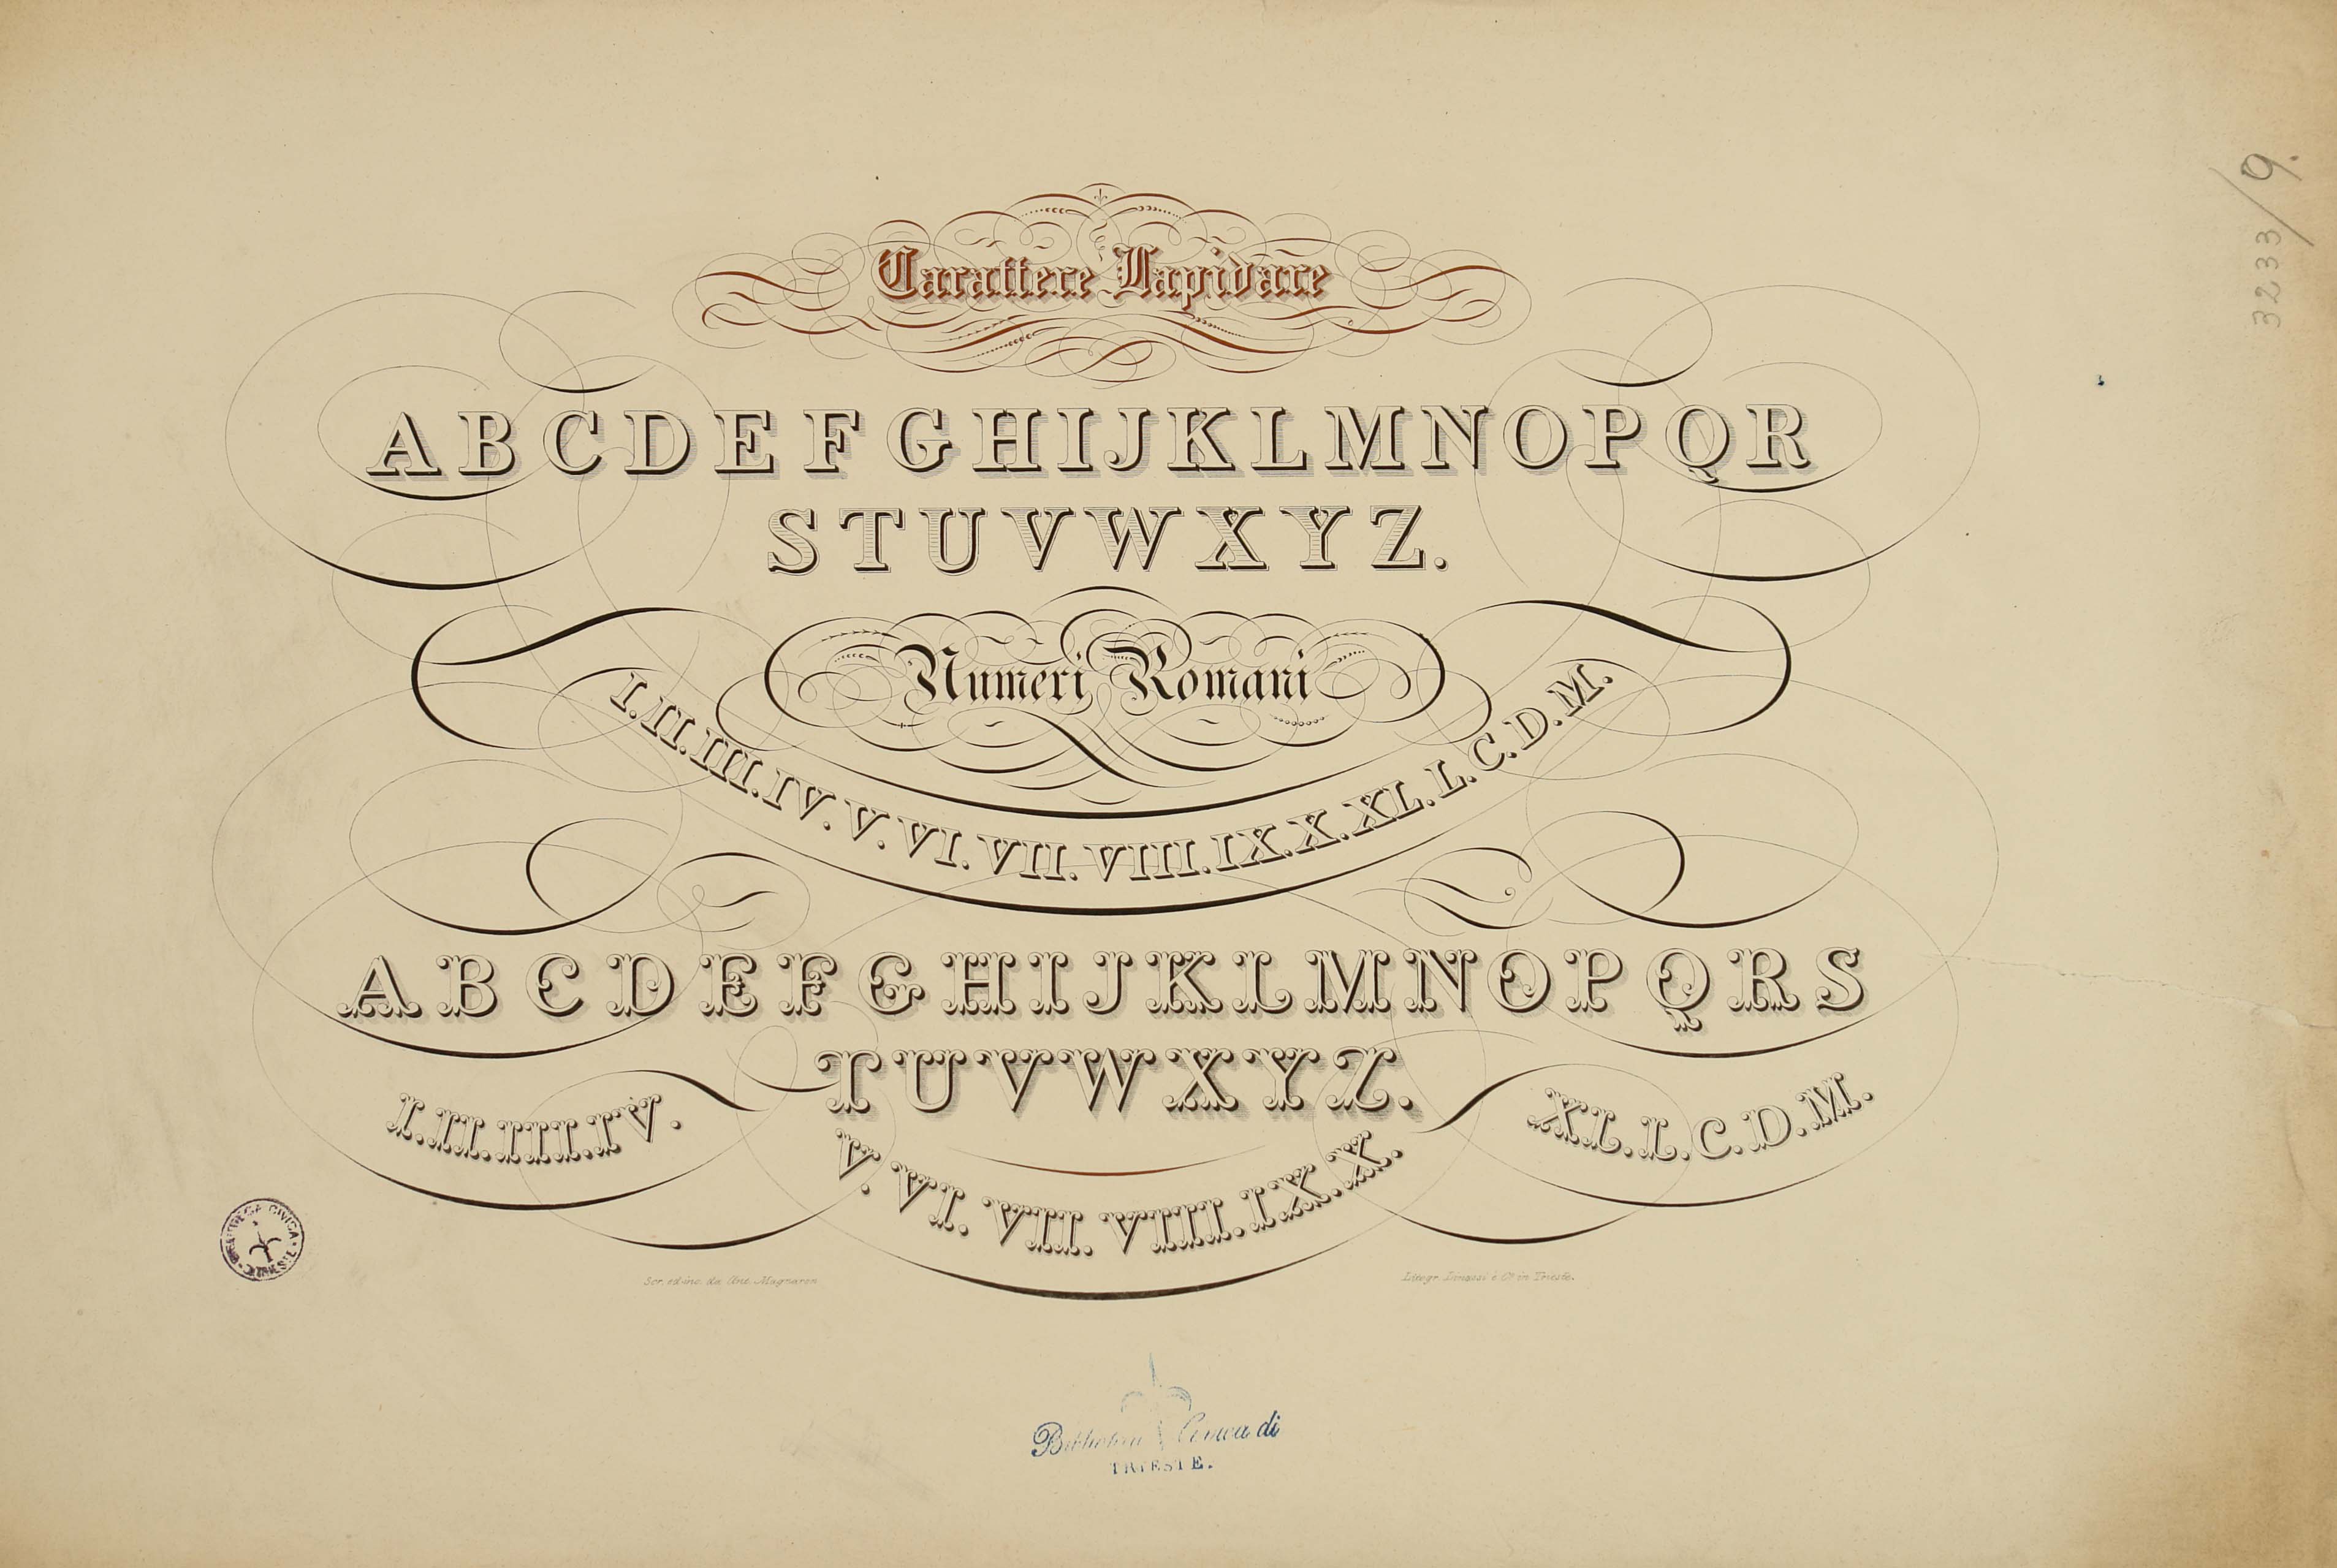 Carattere Lapidare
ABCDEFGHIJKLMNOPQR
STUVWXYZ.
Numeri Romani
I. II. III. IV. V. VI. VII. VIII. IX. X. XL. L. C. D. M.
ABCDEFGHIJKLMNOPQRS
TUVWXYZ.
I. II. III. IV.
V. VI. VII. VIII. IX. X.
XL. L. C. D. M.
Scr. ed inc. da Ant. Magnaron
Litogr. Linassi e Co. in Trieste.
BIBLIOTECA CIVICA
TRIESTE
Biblioteca Civica di
TRIESTE.
32233/9.